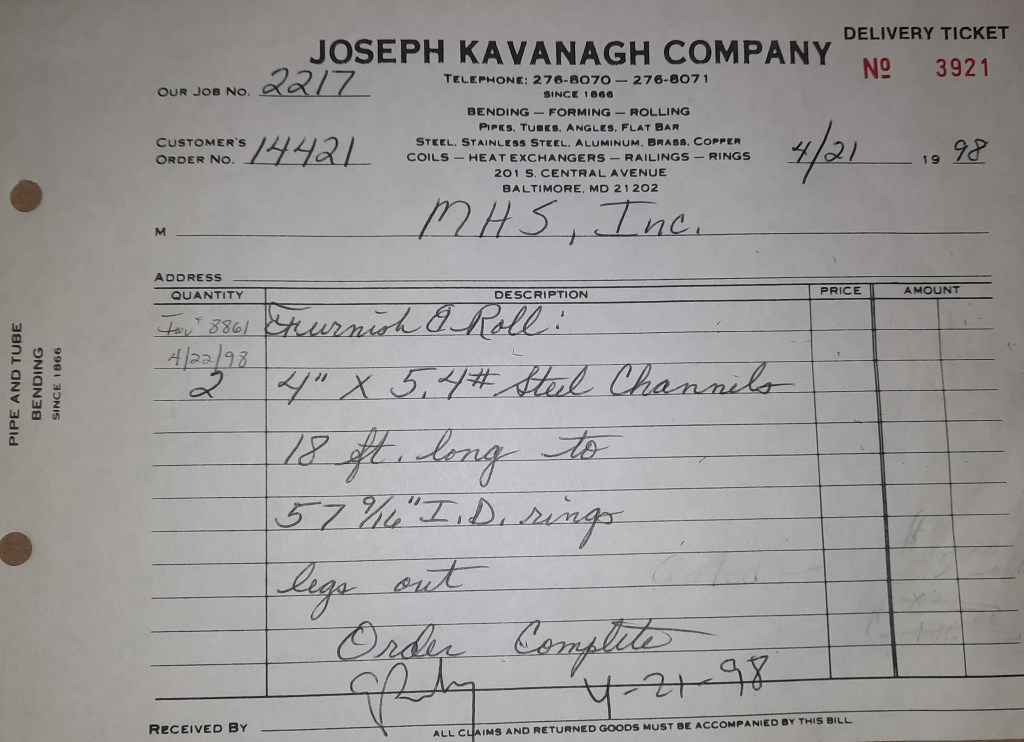 DELIVERY TICKET
JOSEPH KAVANAGH COMPANY
No 3921
TELEPHONE: 276-8070 — 276-8071
OUR JOB NO. 2217
SINCE 1866
BENDING — FORMING — ROLLING
PIPES, TUBES, ANGLES, FLAT BAR
CUSTOMER'S
ORDER NO. 14421
STEEL, STAINLESS STEEL, ALUMINUM, BRASS, COPPER
COILS — HEAT EXCHANGERS — RAILINGS — RINGS
4/21 19 98
201 S. CENTRAL AVENUE
BALTIMORE, MD 21202
M MHS, Inc.
ADDRESS
QUANTITY DESCRIPTION PRICE AMOUNT
8861 Furnish & Roll:
4/22/98
2 4" X 5.4# Steel Channels
18 ft. long to
57 9/16" I.D. rings
legs out
Order Complete
4-21-98
RECEIVED BY
ALL CLAIMS AND RETURNED GOODS MUST BE ACCOMPANIED BY THIS BILL
PIPE AND TUBE
BENDING
SINCE 1866